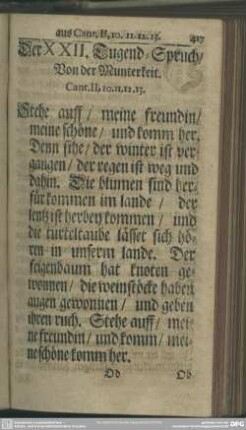 aus Cant. II, 10. 11. 12. 13. 417
Der XXII. Tugend-Spruch/
Von der Munterkeit.
Cant. II, 10. 11. 12. 13.
Stehe auff / meine freundin/
meine schöne / und komm her.
Denn sihe / der winter ist ver-
gangen / der regen ist weg und
dahin. Die blumen sind her-
für kommen im lande / der
lentz ist herbey kommen / und
die turteltaube lässet sich hö-
ren in unserm lande. Der
feigenbaum hat knoten ge-
wonnen / die weinstöcke haben
augen gewonnen / und geben
ihren ruch. Stehe auff / mei-
ne freundin / und komm / mei-
ne schöne komm her.
Dd Ob